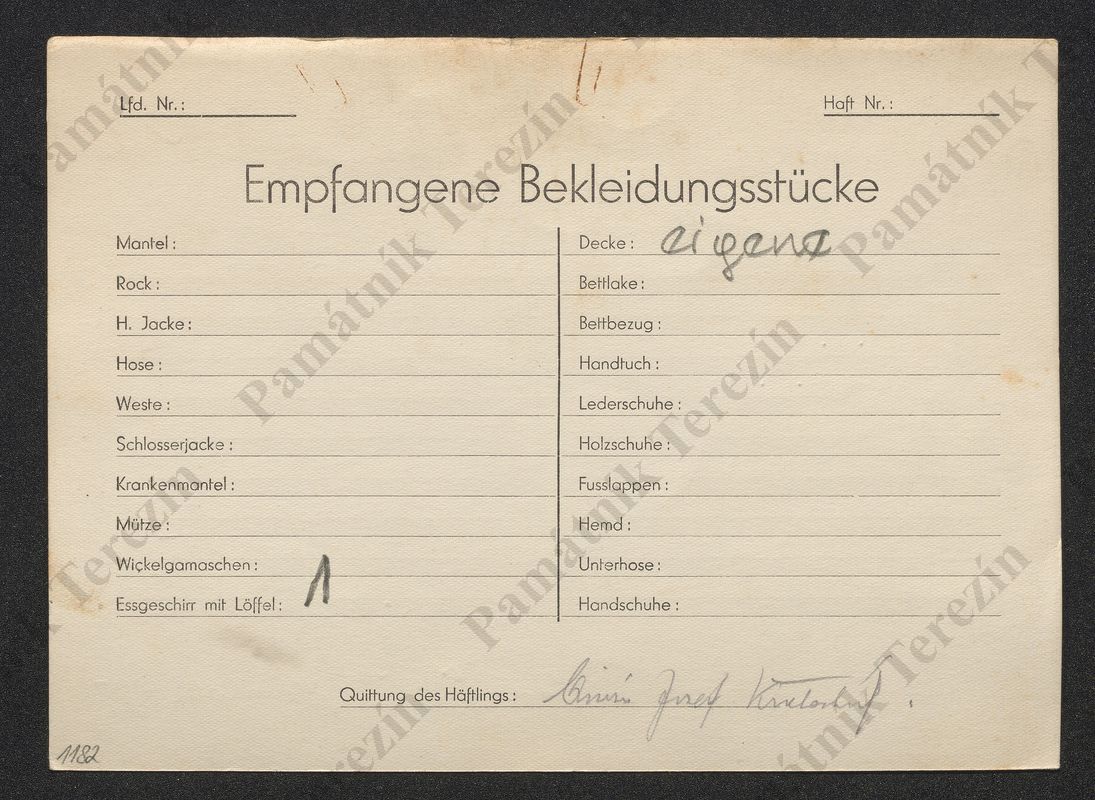 Lfd. Nr.:
Haft Nr.:
Empfangene Bekleidungsstücke
Mantel:
Rock:
H. Jacke:
Hose:
Weste:
Schlosserjacke:
Krankenmantel:
Mütze:
Wickelgamaschen:
Essgeschirr mit Löffel: 1
Decke: eigene
Bettlake:
Bettbezug:
Handtuch:
Lederschuhe:
Holzschuhe:
Fusslappen:
Hemd:
Unterhose:
Handschuhe:
Quittung des Häftlings: Josef
1182
Památník Terezín